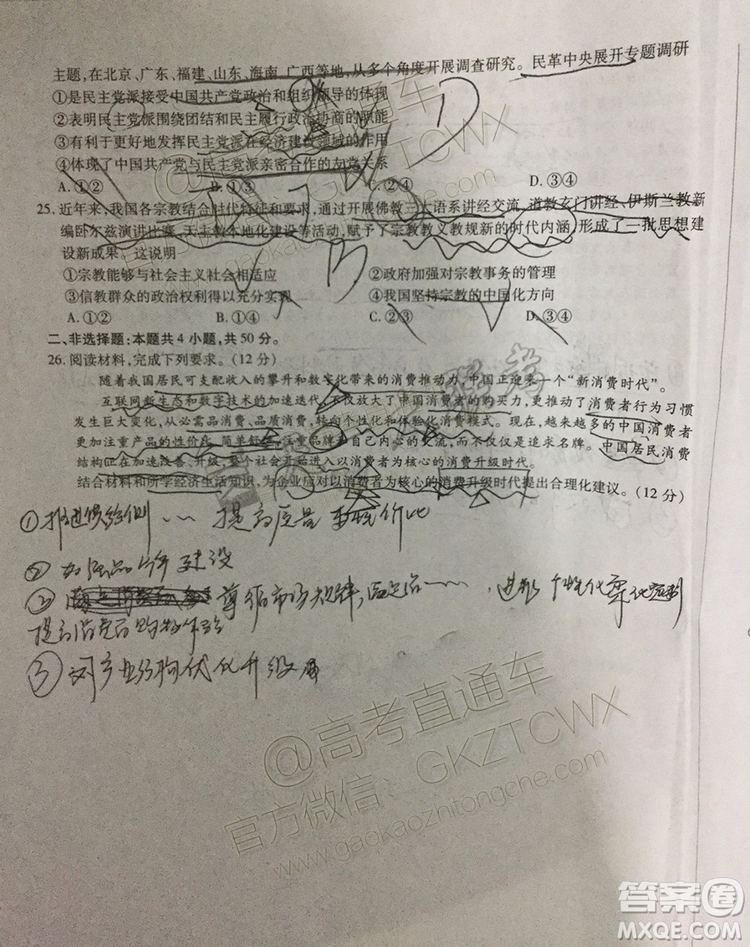 主题,在北京、广东、福建、山东、海南、广西等地,从多个角度开展调查研究。民革中央展开专题调研
①是民主党派接受中国共产党政治和组织领导的体现
②表明民主党派围绕团结和民主履行政治协商的职能
③有利于更好地发挥民主党派在经济建设领域的作用
④体现了中国共产党与民主党派亲密合作的友党关系
A.①② B.①③ C.②④ D.③④
25.近年来,我国各宗教结合时代特征和要求,通过开展佛教三大语系讲经交流、道教玄门讲经、伊斯兰教新
编卧尔兹演讲比赛、天主教本地化建设等活动,赋予了宗教教义教规新的时代内涵,形成了一批思想建
设新成果。这说明
①宗教能够与社会主义社会相适应 ②政府加强对宗教事务的管理
③信教群众的政治权利得以充分实现 ④我国坚持宗教的中国化方向
A.①② B.①④ C.②③ D.③④
二、非选择题:本题共4小题,共50分。
26.阅读材料,完成下列要求。(12分)
随着我国居民可支配收入的攀升和数字化带来的消费推动力,中国正迎来一个“新消费时代”。
互联网新生态和数字技术的加速迭代,不仅放大了中国消费者的购买力,更推动了消费者行为习惯
发生巨大变化,从必需品消费、品质消费,转向个性化和体验化消费模式。现在,越来越多的中国消费者
更加注重产品的性价比,简单舒适,注重品牌与自己内心的交流,而不仅仅是追求名牌。中国居民消费
结构正在加速改善、升级,整个社会开始进入以消费者为核心的消费升级时代。
结合材料和所学经济生活知识,为企业应对以消费者为核心的消费升级时代提出合理化建议。(12分)
①推进供给侧 …… 提高质量 性价比
②加强品牌建设
③ 尊循市场规律, …… 个性化
提高消费者购物体验
③ 对产业结构优化升级
@高考直通车
官方微信:GKZTCWX
www.gaokaozhitongche.com
答案圈
MXQE.COM